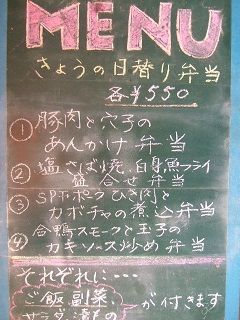 MENU
きょうの日替り弁当
各¥550
① 豚肉と穴子の
あんかけ弁当
② 塩さば焼、白身魚フライ
盛合せ弁当
③ SPポークひき肉と
カボチャの煮込弁当
④ 合鴨スモークと玉子の
カキソース炒め弁当
それぞれに…
ご飯 副菜
サラダ 漬もの
が付きます